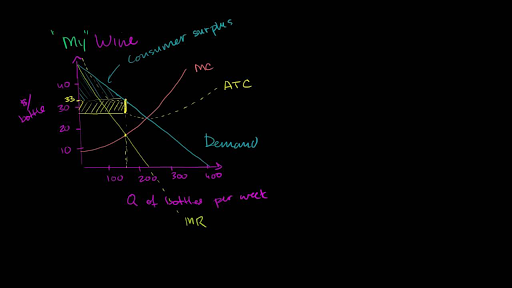 "My" Wine
Consumer surplus
MC
ATC
$/bottle
40
33
30
20
10
Demand
100 200 300 400
Q of bottles per week
MR